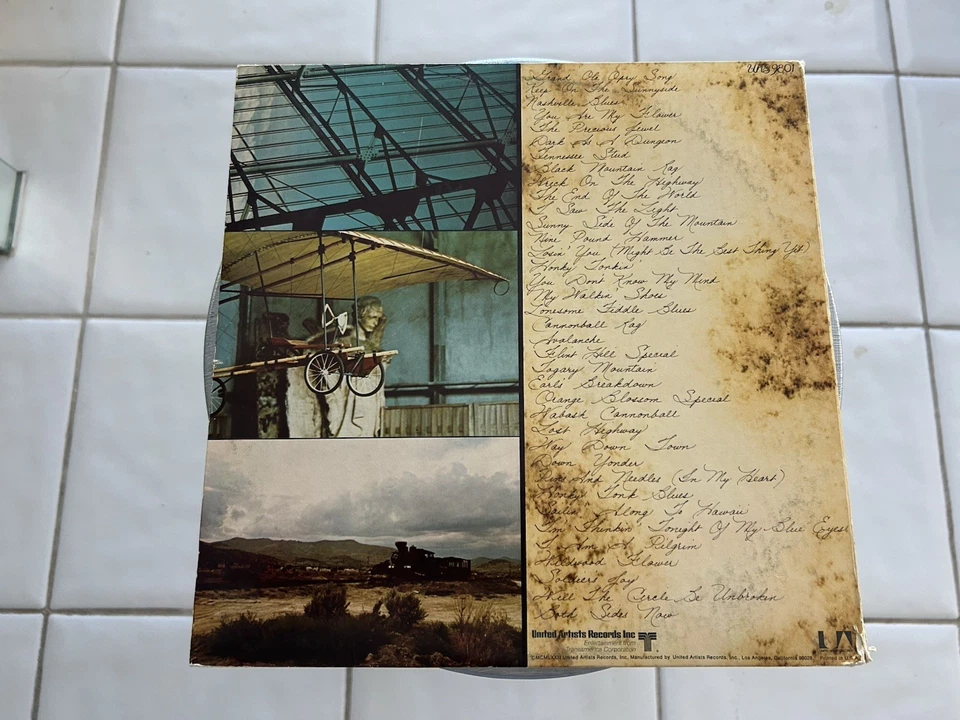 UAS 9801
Grand Ole Opry Song
Keep On The Sunnyside
Nashville Blues
You Are My Flower
The Precious Jewel
Dark As A Dungeon
Tennessee Stud
Black Mountain Rag
Wreck On The Highway
The End Of The World
I Saw The Light
Sunny Side Of The Mountain
Nine Pound Hammer
Losin' You (Might Be The Best Thing Yet)
Honky Tonkin'
You Don't Know My Mind
My Walkin' Shoes
Lonesome Fiddle Blues
Cannonball Rag
Avalanche
Flint Hill Special
Togary Mountain
Earl's Breakdown
Orange Blossom Special
Wabash Cannonball
Lost Highway
Way Down Town
Down Yonder
Pins And Needles (In My Heart)
Honky Tonk Blues
Sailin' Along To Hawaii
I'm Thinkin' Tonight Of My Blue Eyes
I Am A Pilgrim
Wildwood Flower
Soldier's Joy
Will The Circle Be Unbroken
Both Sides Now
United Artists Records Inc
Entertainment from
Transamerica Corporation
UA
United Artists Records, Inc. Manufactured by United Artists Records, Inc., Los Angeles, California 90028
Printed in U.S.A.